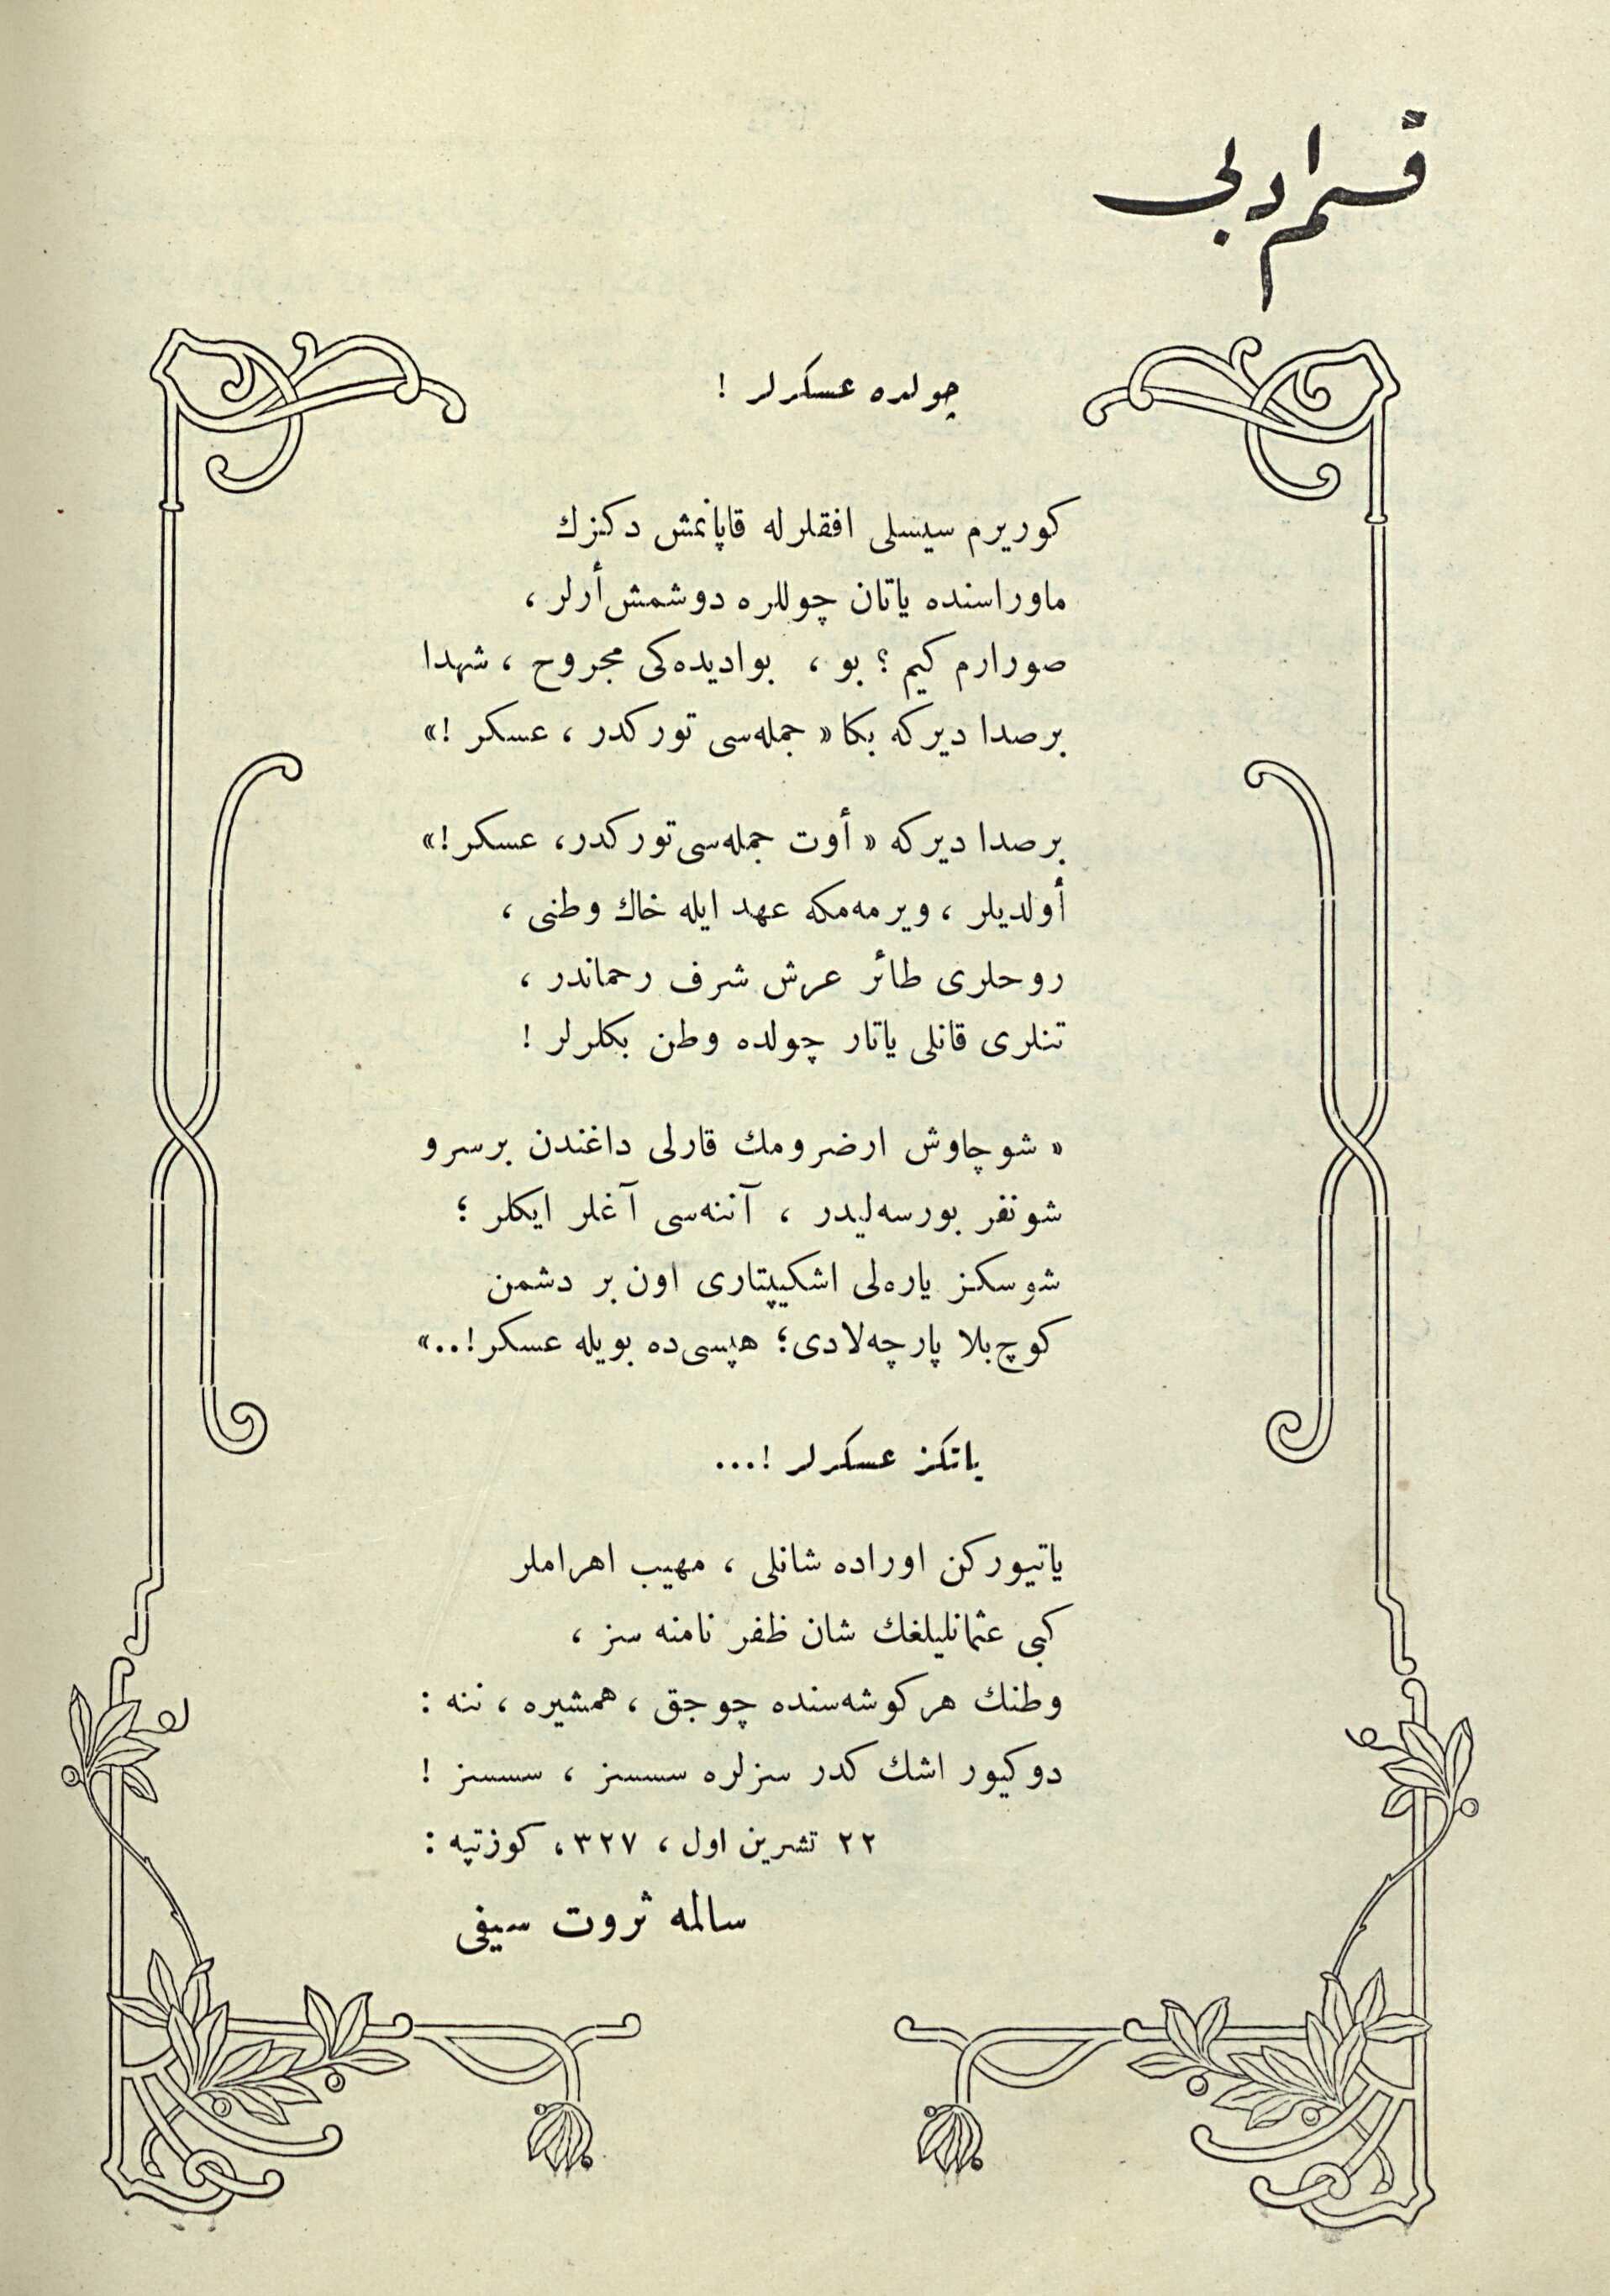 قسم ادبی
چولده عسكرلر !
كوریرم سیسلی افقلرله قاپانمش دكزك
ماوراسنده یاتان چوللره دوشمش أرلر ،
صورارم كیم ؟ بو ، بوادیده‌كی مجروح ، شهدا
برصدا دیركه بكا « جمله‌سی توركدر ، عسكر !»
برصدا دیركه « أوت جمله‌سی توركدر، عسكر !»
أولدیلر ، ویرمه‌مكه عهد ایله خاك وطنی ،
روحلری طائر عرش شرف رحماندر ،
تنلری قانلی یاتار چولده وطن بكلرلر !
« شو چاوش ارضرومك قارلی داغندن برسرو
شو نفر بورسه‌لیدر ، آننه‌سی آغلر ایكلر ؛
شو سكز یاره‌لی اشكیپتاری اون بر دشمن
كوچ‌بلا پارچه‌لادی؛ هپسی‌ده بویله عسكر !..»
یاتكز عسكرلر !...
یاتیوركن اوراده شانلی ، مهیب اهراملر
كبی عثمانلیلغك شان ظفر نامنه سز ،
وطنك هر كوشه‌سنده چوجق ، همشیره ، ننه :
دوكیور اشك كدر سزلره سسسز ، سسسز !
٢٢ تشرین اول ، ٣٢٧ ، كوزتپه :
سالمه ثروت سیفی